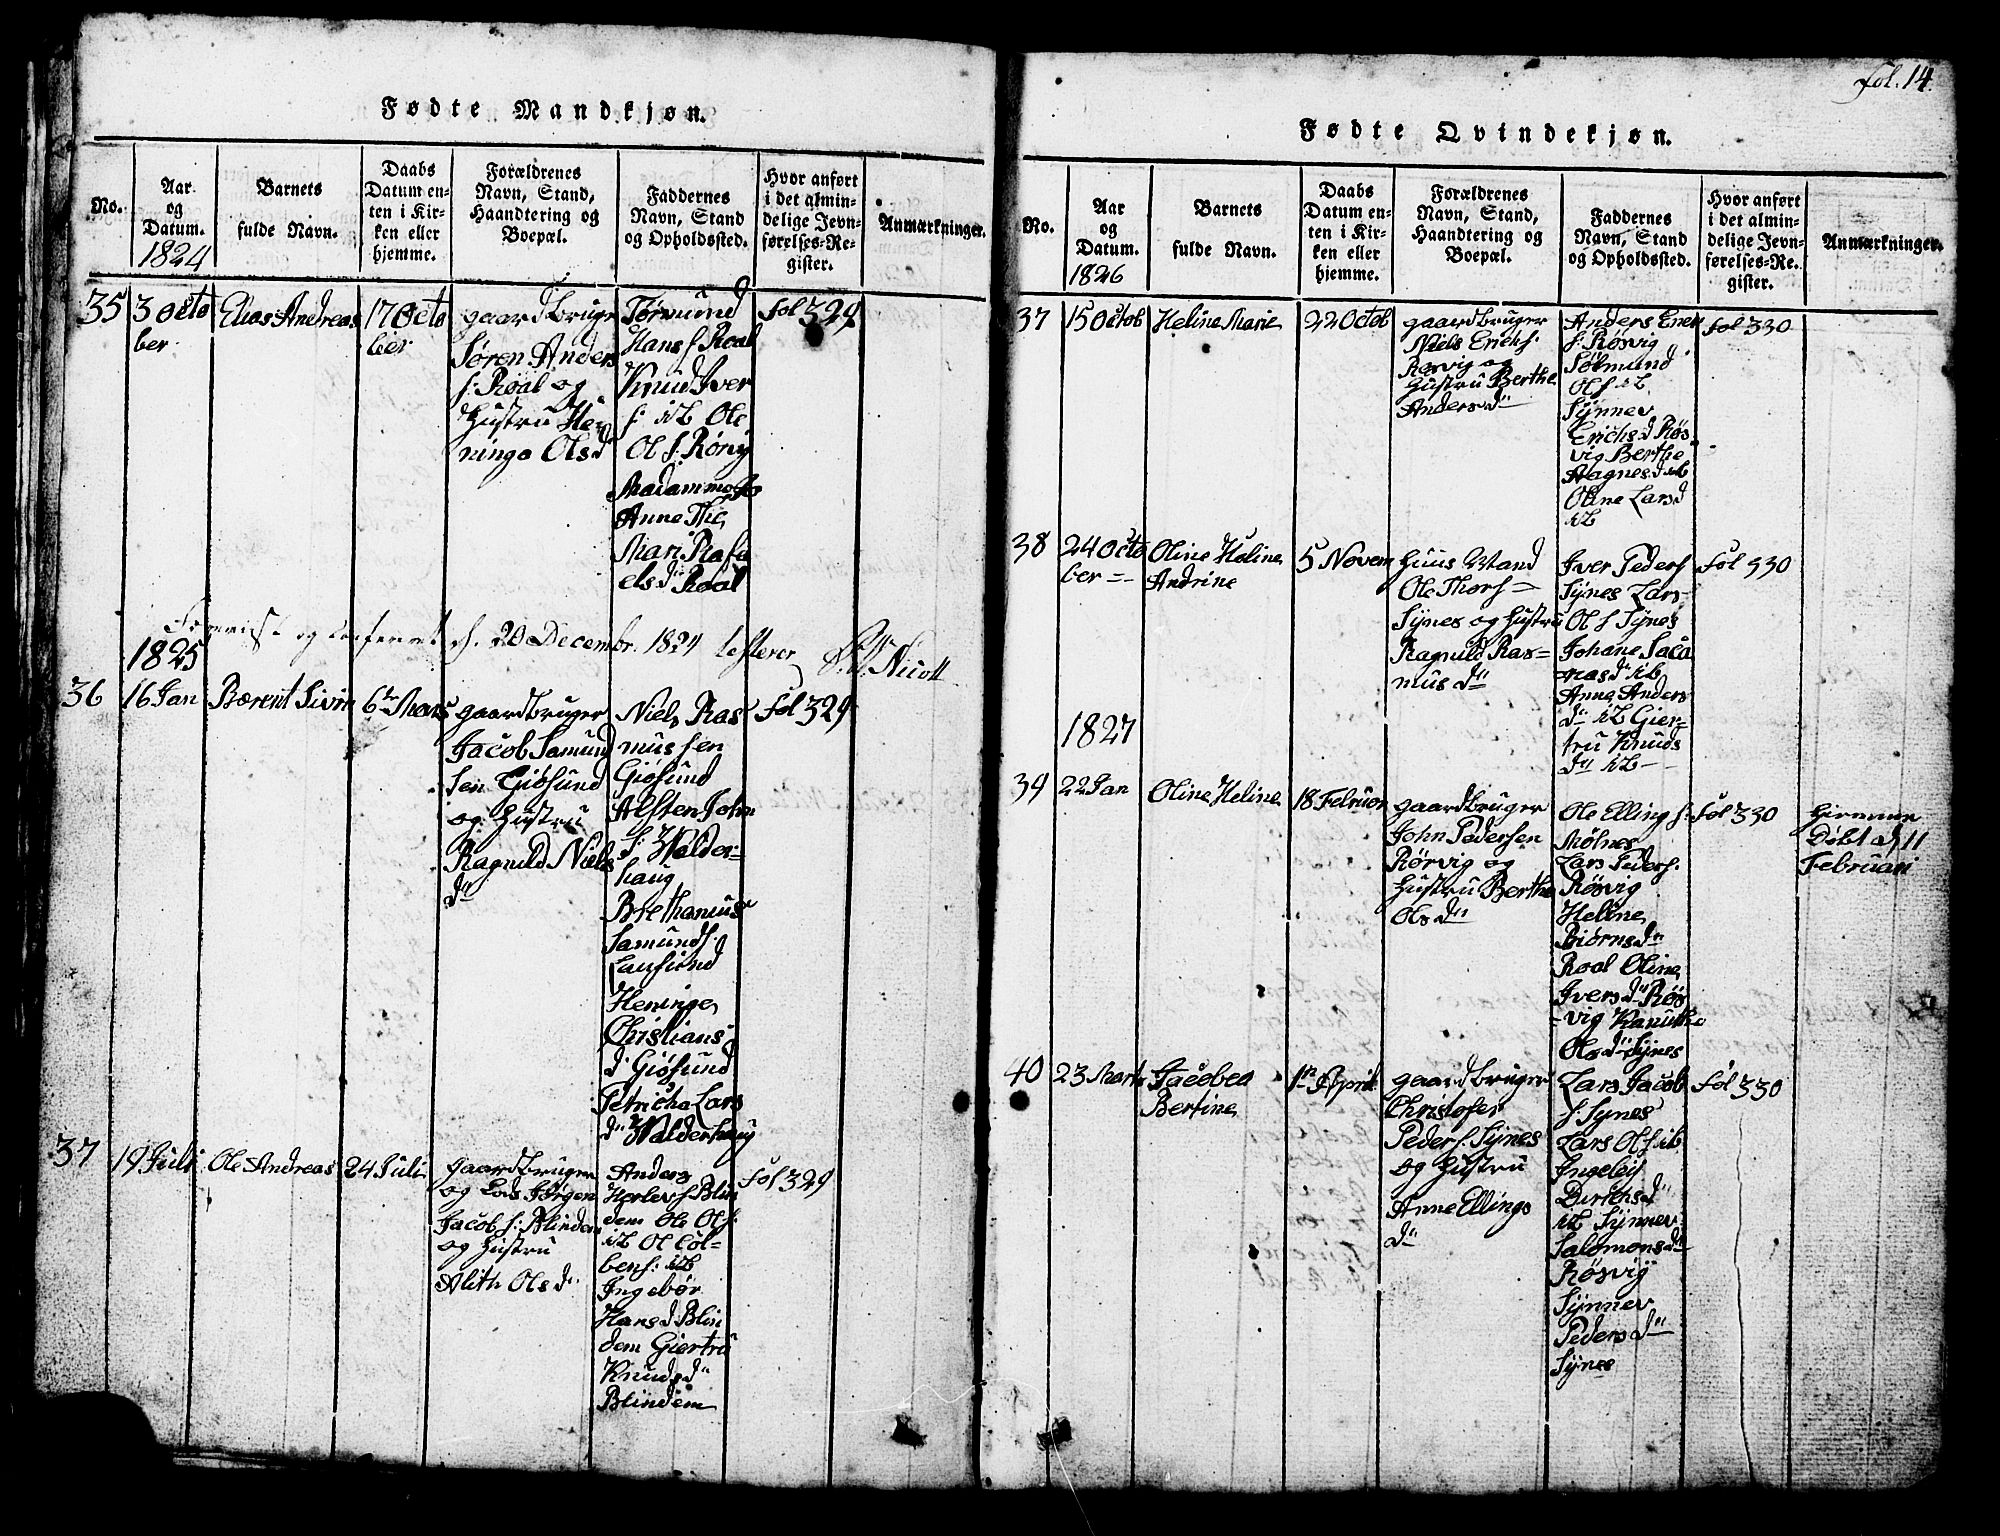 Fødte Mandkjøn.
No.
Aar
og
Datum.
1824
Barnets
fulde Navn.
Daabs
Datum en-
ten i Kir-
ken eller
hjemme.
Forældrenes
Navn, Stand,
Haandtering og
Boepæl.
Faddernes
Navn, Stand
og Opholdssted.
Hvor anført
i det almin-
delige Jevn-
førelses-Re-
gister.
Anmærkninger.
35
3 Octo
ber
Elias Andreas
17 Octo
ber
gaardbruger
Søren Anders
s: Roal og
Hustru He-
ninge Olsd
Tormund
Hans s Roal
Knud Iver
s: ib Ole
Ol s: Rørvig
Madamme
Anne Thie
Mari Rafa
elsd Roal
fol 329
og Confereret d. 20 Decembr. 1824
1825
36
16 Jan
Bærent Sivin
6te Mars
gaardbruger
Jacob Samund
sen Giøsund
og Hustru
Ragnild Niels
dr
Niels Ras
mussen
Giøsund
Alfsten John
s: Walder-
haug
Brethanius
Samunds.
Heninge
Christians
d. Giøsund
Petricha Lars
dr Walderhaug
fol 329
37
19 Juli
Ole Andreas
24 Juli
gaardbruger
og Lods Jørgen
Jacob s: Blindem
og Hustru
Alith Olsdr
Anders
Herlevs Blin
dem Ole Ols:
ib Ol Col-
bens: ib
Ingebør
Hansd Blin
dem Giertru
Knudsdr
Blindem
fol 329
fol. 14.
Fødte Qvindekjøn.
No.
Aar
og
Datum.
1826
Barnets
fulde Navn.
Daabs
Datum en-
ten i Kir-
ken eller
hjemme.
Forældrenes
Navn, Stand,
Haandtering og
Boepæl.
Faddernes
Navn, Stand
og Opholdssted.
Hvor anført
i det almin-
delige Jevn-
førelses-Re-
gister.
Anmærkninger.
37
15 Octob
Heline Marie
22 Octob
gaardbruger
Niels Erichs.
Rørvig og
Hustru Berthe
Andersdr
Anders
s: Røsvig
Sølmund
Ols ib
Synnev
Erichsd Røs
vig Berthe
Aagnesd ib
Oline Larsd
ib
fol 330
38
24 Octo
ber
Oline Heline
Andrine
5 Novem
Huus Mand
Ole Thors
Synes og Hustru
Ragnild Ras-
musdr
Iver Peders
Synes Lars
Ol s Synes
Johane Jaca
riasdr ib
Anne Anders
dr ib Gier-
tru Knuds
dr ib
fol 330
1827
39
22 Jan
Oline Heline
18 Februar
gaardbruger
John Pedersen
Rørvig og
Hustru Berthe
Olsdr
Ole Elling s:
Mølnes
Lars Peders.
Røsvig
Heline
Biørnsdr
Roal Oline
Iversdr Røs
vig Kanutha
Olsdr Synes
fol 330
Hiemme
Døbt d 11
Februari
40
23 Marts
Jacobea
Bertine
1te April
gaardbruger
Christofer
Peders. Synes
og Hustru
Anne Ellings
dr
Lars Jacob
s: Synes
Lars Ols ib
Ingeley
ib Synnev
Salomonsdr
Røsvig
Synnev
Pedersdr
Synes
fol 330